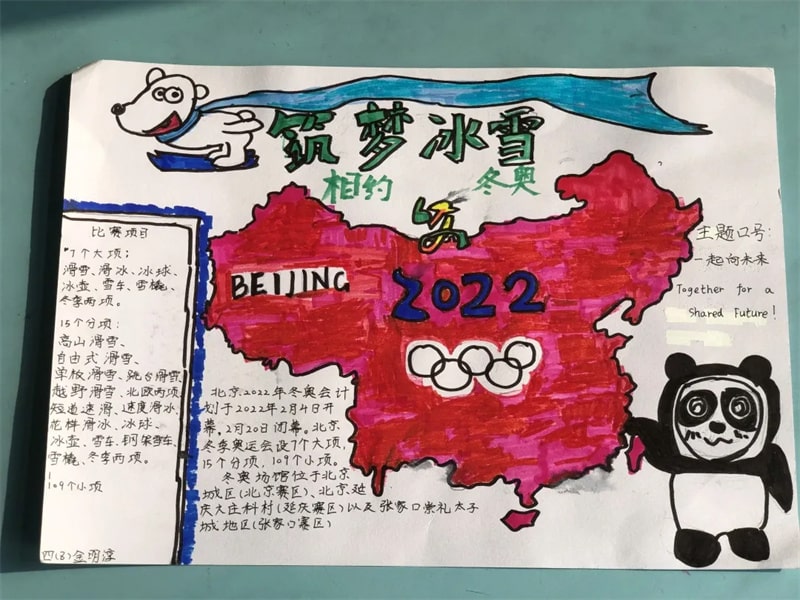 筑梦冰雪
相约 冬奥
比赛项目
7个大项:
滑雪、滑冰、冰球、
冰壶、雪车、雪橇、
冬季两项。
15个分项:
高山滑雪、
自由式滑雪、
单板滑雪、跳台滑雪
越野滑雪、北欧两项
短道速滑、速度滑冰、
花样滑冰、冰球、
冰壶、雪车、钢架雪车、
雪橇、冬季两项。
109个小项
四(8)金明淳
BEIJING
2022
北京2022年冬奥会计
划于2022年2月4日开
幕。2月20日闭幕。北京
冬季奥运会设7个大项,
15个分项,109个小项。
冬奥场馆位于北京
城区(北京赛区)、北京延
庆大庄科村(延庆赛区)以及张家口崇礼太子
城地区(张家口赛区)
主题口号:
一起向未来
Together for a
shared Future!